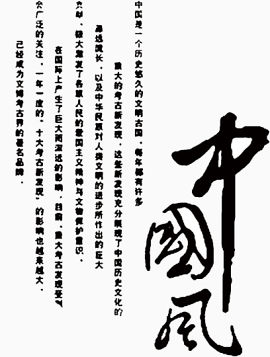 中国是一个历史悠久的文明古国，每年都有许多
重大的考古新发现，这些新发现充分展现了中国历史文化的
源远流长，以及中华民族对人类文明的进步所作出的巨大
贡献，极大激发了各族人民的爱国主义精神与文物保护意识，
在国际上产生了巨大而深远的影响，目前，重大考古发现受
广泛的关注，一年一度的“十大考古新发现”的影响也越来越大，
已经成为文博考古界的著名品牌．
中國风